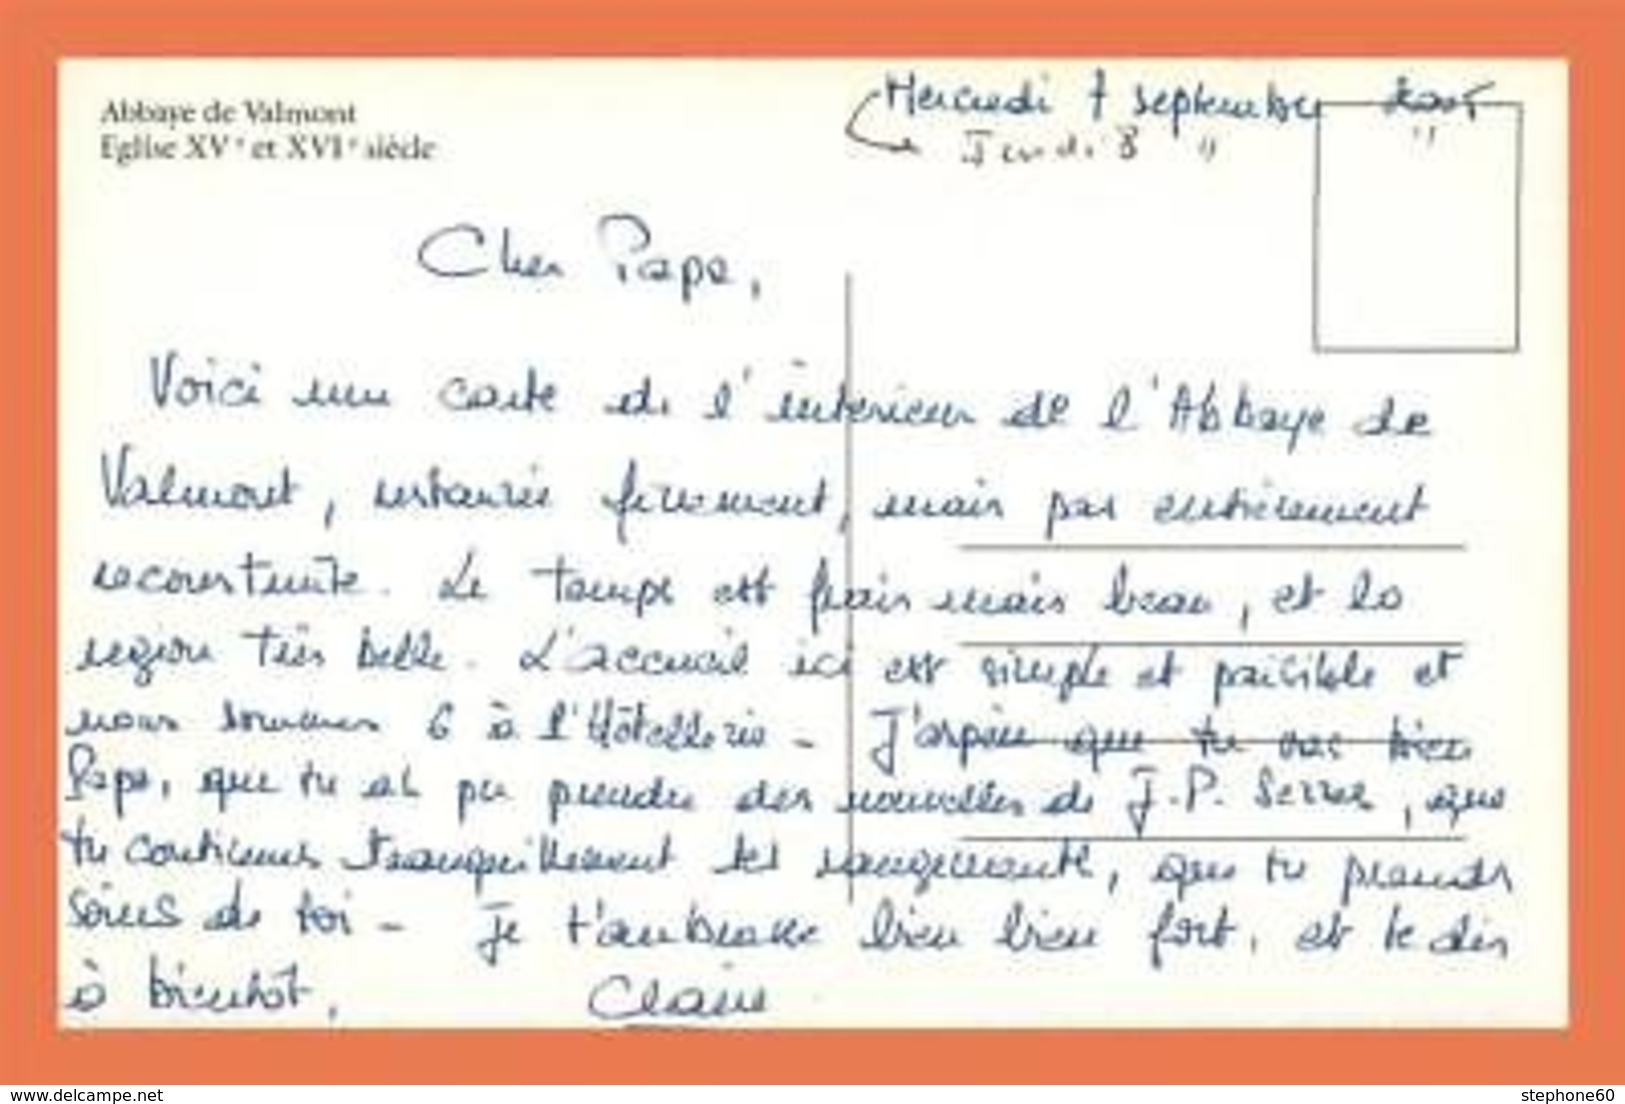 Abbaye de Valmont
Eglise XVe et XVIe siècle
Mercredi 7 septembre
Jeudi 8 "  "
Cher Papa,
Voici une carte de l'intérieur de l'Abbaye de
Valmont, restaurée finement, mais pas entièrement
reconstruite. Le temps est frais mais beau, et la
région très belle. L'accueil ici est simple et paisible et
nous sommes 6 à l'Hôtellerie - J'espère que tu vas bien
Papa, que tu as pu prendre des nouvelles de J.P. Serres, que
tu continues tranquillement tes rangements, que tu prends
soins de toi - Je t'embrasse bien bien fort, et te dis
à bientôt,
Claire
delcampe.net
stephone60